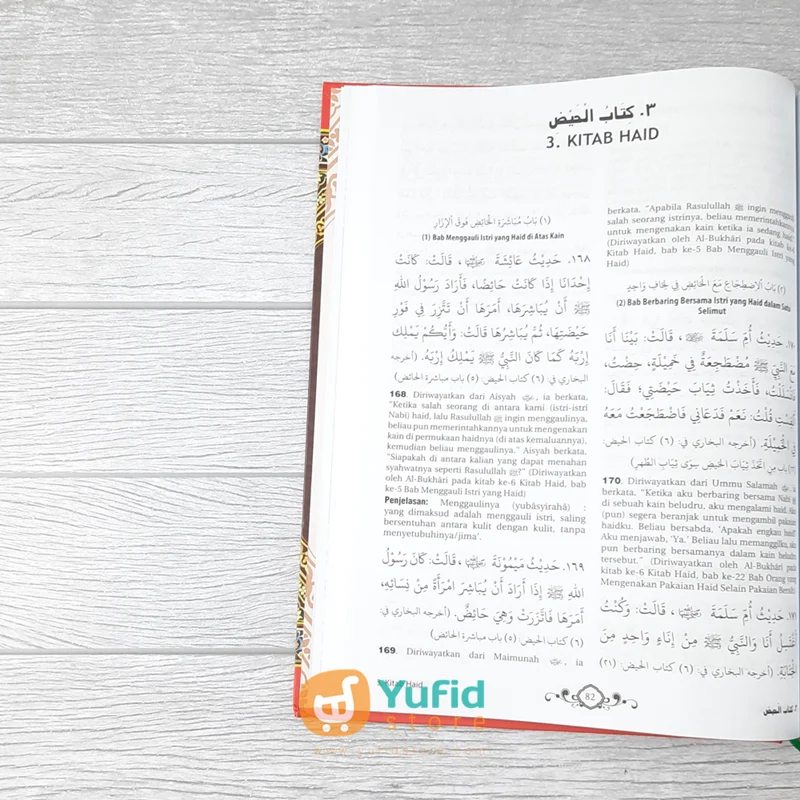 ٣. كِتَابُ الْحَيْضِ
3. KITAB HAID
(١) بَابُ مُبَاشَرَةِ الْحَائِضِ فَوْقَ الْإِزَارِ
(1) Bab Menggauli Istri yang Haid di Atas Kain
١٦٨. حَدِيْثُ عَائِشَةَ ، قَالَتْ: كَانَتْ
إِحْدَانَا إِذَا كَانَتْ حَائِضًا، فَأَرَادَ رَسُوْلُ اللهِ
ﷺ أَنْ يُبَاشِرَهَا، أَمَرَهَا أَنْ تَتَّزِرَ فِي فَوْرِ
حَيْضَتِهَا، ثُمَّ يُبَاشِرُهَا قَالَتْ: وَأَيُّكُمْ يَمْلِكُ
إِرْبَهُ كَمَا كَانَ النَّبِيُّ ﷺ يَمْلِكُ إِرْبَهُ. (أخرجه
البخاري في: (٦) كتاب الحيض: (٥) باب مباشرة الحائض)
168. Diriwayatkan dari Aisyah , ia berkata,
"Ketika salah seorang di antara kami (istri-istri
Nabi) haid, lalu Rasulullah ﷺ ingin menggaulinya,
beliau pun memerintahkannya untuk mengenakan
kain di permukaan haidnya (di atas kemaluannya),
kemudian beliau menggaulinya." Aisyah berkata,
"Siapakah di antara kalian yang dapat menahan
syahwatnya seperti Rasulullah ﷺ?" (Diriwayatkan
oleh Al-Bukhâri pada kitab ke-6 Kitab Haid, bab
ke-5 Bab Menggauli Istri yang Haid)
Penjelasan: Menggaulinya (yubâsyirahâ) :
yang dimaksud adalah menggauli istri, saling
bersentuhan antara kulit dengan kulit, tanpa
menyetubuhinya/jima'.
١٦٩. حَدِيْثُ مَيْمُوْنَةَ ، قَالَتْ: كَانَ رَسُوْلُ
اللهِ ﷺ إِذَا أَرَادَ أَنْ يُبَاشِرَ امْرَأَةً مِنْ نِسَائِهِ،
أَمَرَهَا فَاتَّزَرَتْ وَهِيَ حَائِضٌ. (أخرجه البخاري في:
(٦) كتاب الحيض: (٥) باب مباشرة الحائض)
169. Diriwayatkan dari Maimunah , ia
berkata, "Apabila Rasulullah ﷺ ingin menggauli
salah seorang istrinya, beliau memerintahkannya
untuk mengenakan kain ketika ia sedang haid."
(Diriwayatkan oleh Al-Bukhâri pada kitab ke-6
Kitab Haid, bab ke-5 Bab Menggauli Istri yang
Haid)
(٢) بَابُ الْاِضْطِجَاعِ مَعَ الْحَائِضِ فِي لِحَافٍ وَاحِدٍ
(2) Bab Berbaring Bersama Istri yang Haid dalam Satu
Selimut
حَدِيْثُ أُمِّ سَلَمَةَ ، قَالَتْ: بَيْنَا أَنَا
مَعَ النَّبِيِّ ﷺ مُضْطَجِعَةٌ فِي خَمِيْلَةٍ، حِضْتُ،
فَانْسَلَلْتُ، فَأَخَذْتُ ثِيَابَ حَيْضَتِي؛ فَقَالَ:
أَنُفِسْتِ قُلْتُ: نَعَمْ فَدَعَانِي فَاضْطَجَعْتُ مَعَهُ
فِي الْخَمِيْلَةِ. (أخرجه البخاري في: (٦) كتاب الحيض:
باب من اتخذ ثياب الحيض سوى ثياب الطهر)
170. Diriwayatkan dari Ummu Salamah , ia
berkata, "Ketika aku berbaring bersama Nabi ﷺ
di sebuah kain beludru, aku mengalami haid. Aku
(pun) segera beranjak untuk mengambil pakaian
haidku. Beliau bersabda, 'Apakah engkau haid?'
Aku menjawab, 'Ya.' Beliau lalu memanggilku, aku
pun berbaring bersamanya dalam kain beludru
tersebut." (Diriwayatkan oleh Al-Bukhâri pada
kitab ke-6 Kitab Haid, bab ke-22 Bab Orang yang
Mengenakan Pakaian Haid Selain Pakaian Bersih)
حَدِيْثُ أُمِّ سَلَمَةَ ، قَالَتْ: وَكُنْتُ
أَغْتَسِلُ أَنَا وَالنَّبِيُّ ﷺ مِنْ إِنَاءٍ وَاحِدٍ مِنَ
الْجَنَابَةِ. (أخرجه البخاري في: (٦) كتاب الحيض: (٢١)
3. Kitab Haid
82
٣. كتاب الحيض
Yufid
store